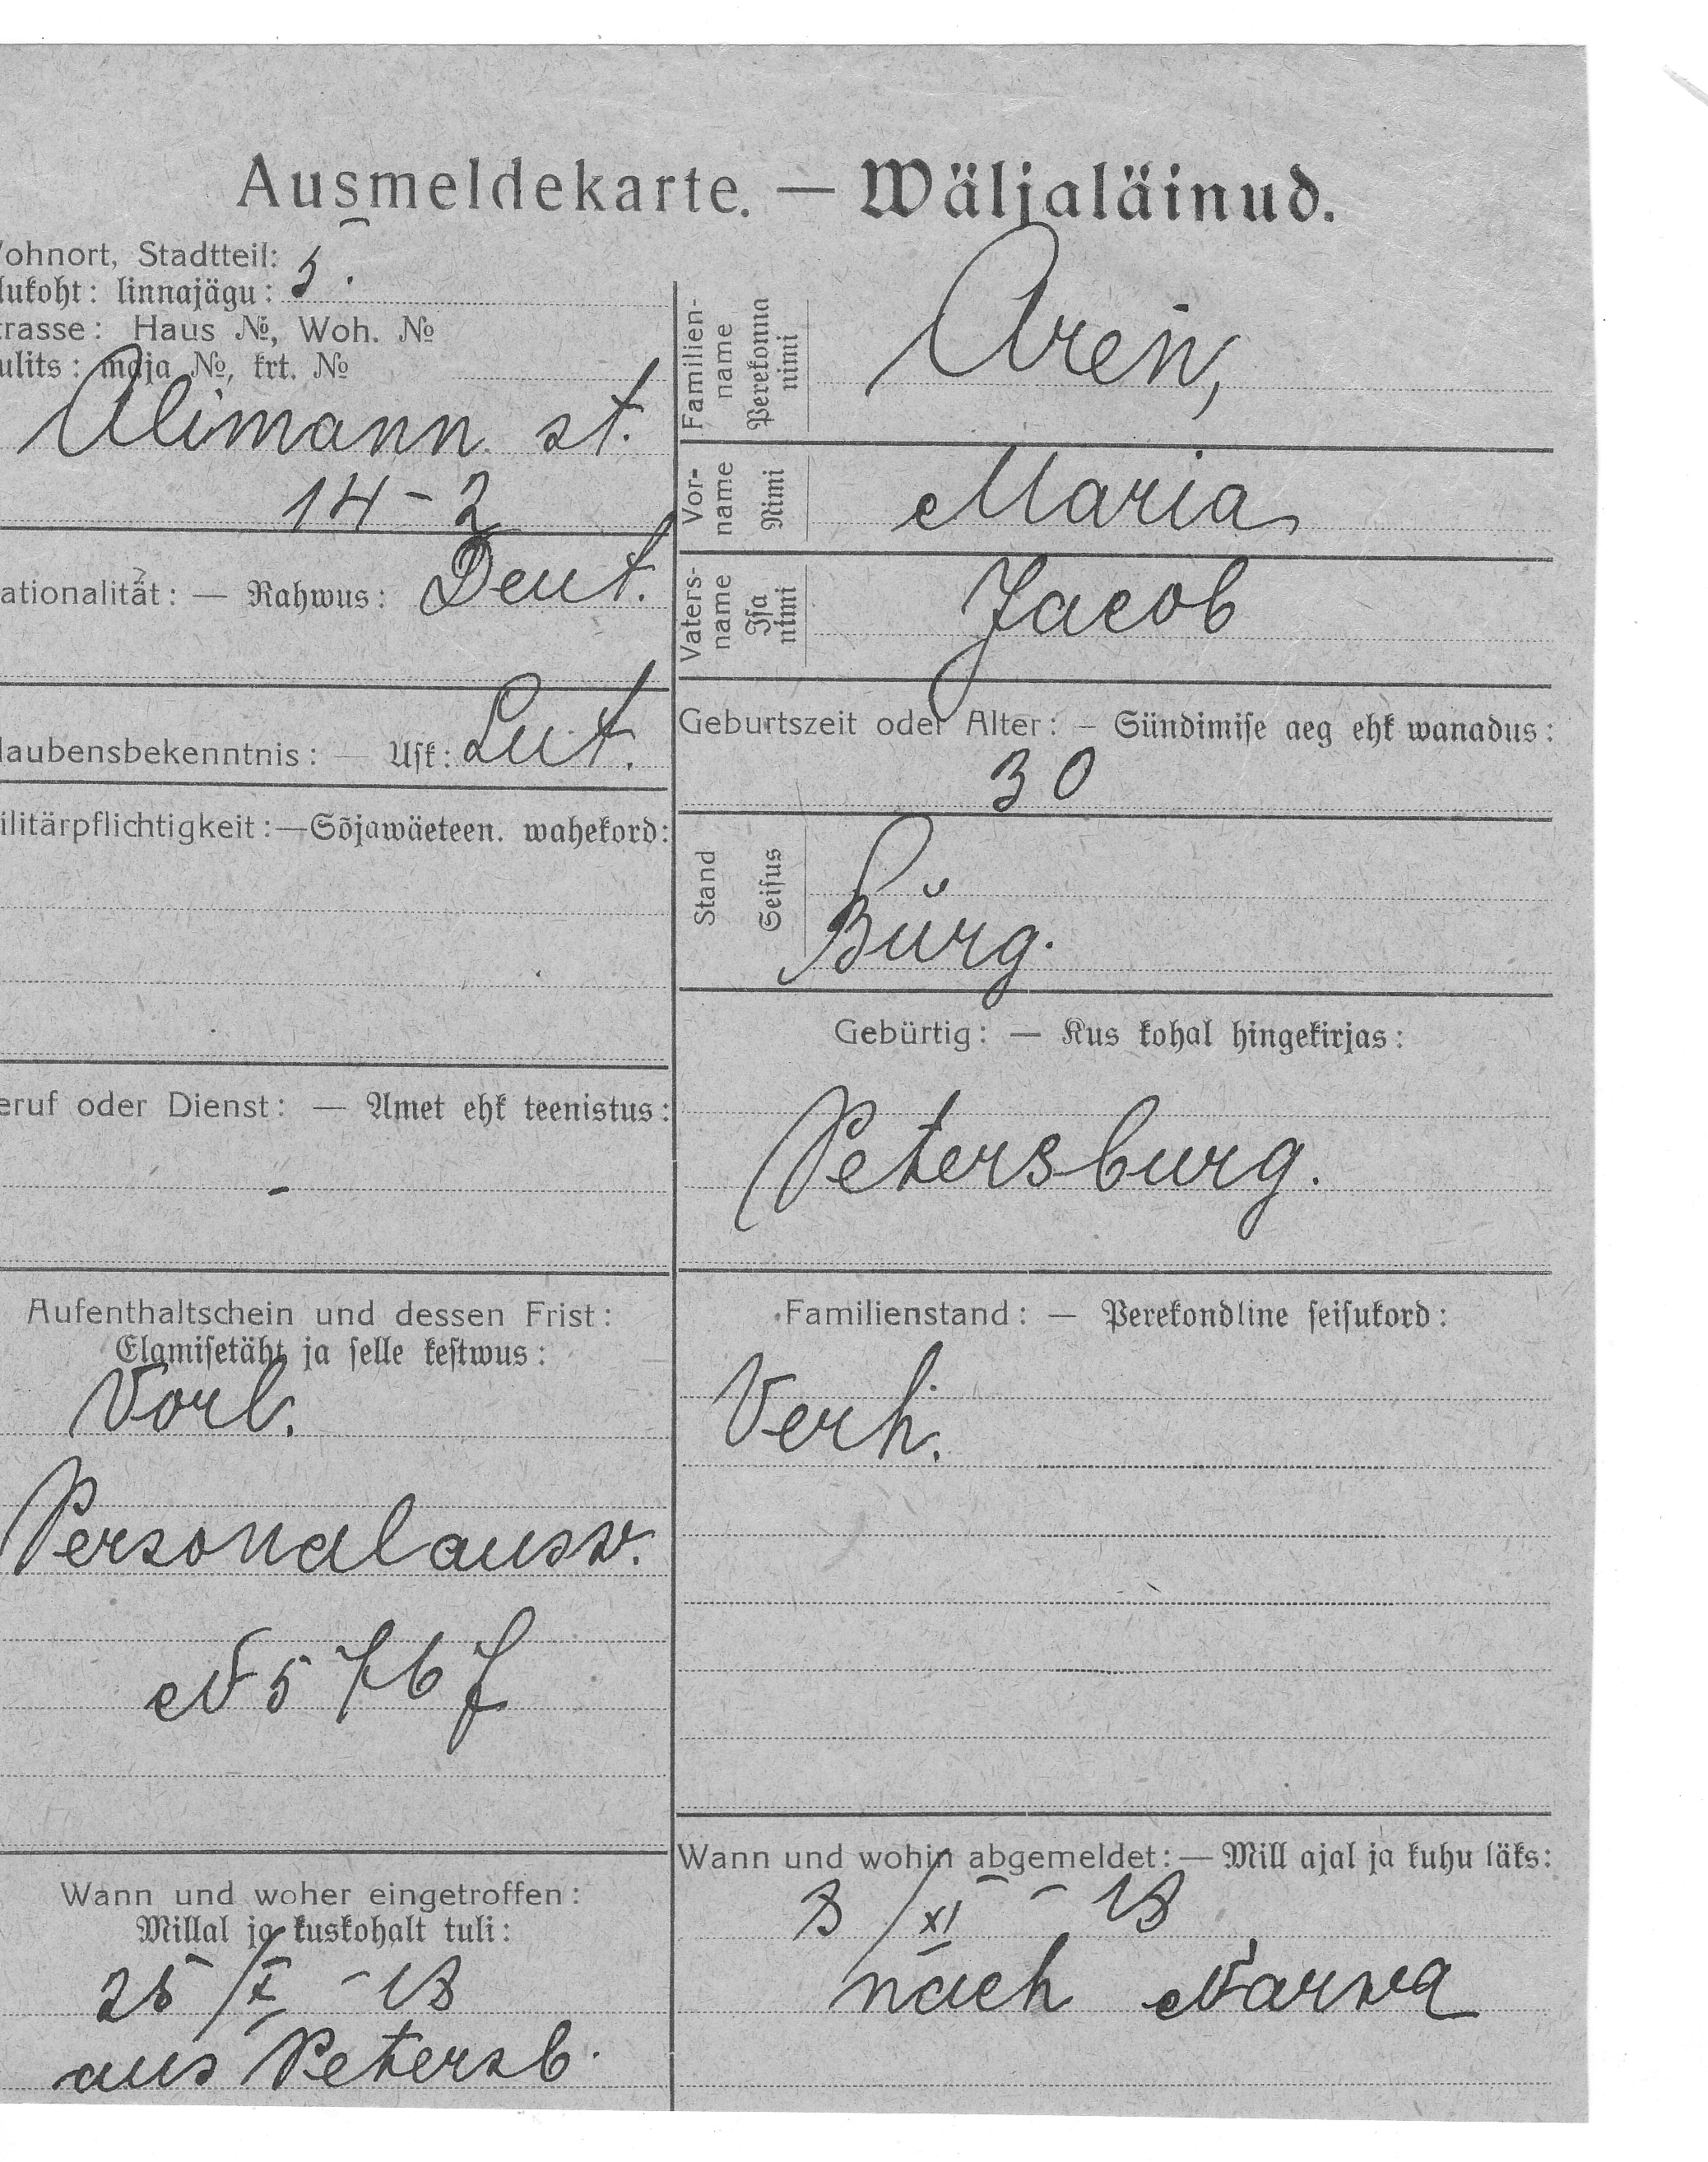 Ausmeldekarte. — Wäljaläinud.
ohnort, Stadtteil: 5.
lukoht: linnajägu:
trasse: Haus №, Woh. №
ulits: maja №, krt. №
Alimann st.
14-2
ationalität: — Rahwus: Deut.
laubensbekenntnis: — Usk: Lut.
ilitärpflichtigkeit:—Sõjawäeteen. wahekord:
eruf oder Dienst: — Amet ehk teenistus:
-
Aufenthaltschein und dessen Frist:
Elamisetäht ja selle kestwus:
Vorl.
Personalausw.
N 5767
Wann und woher eingetroffen:
Millal ja kuskohalt tuli:
25/X -18
aus Petersb.
Familien-
name
Perekonna
nimi
Aren,
Vor-
name
Nimi
Maria
Vaters-
name
Isa
nimi
Jacob
Geburtszeit oder Alter: – Sündimise aeg ehk wanadus:
30
Stand
Seisus
Bürg.
Gebürtig: — Kus kohal hingekirjas:
Petersburg.
Familienstand: — Perekondline seisukord:
Verh.
Wann und wohin abgemeldet: — Mill ajal ja kuhu läks:
8/XI - 18
nach Narwa